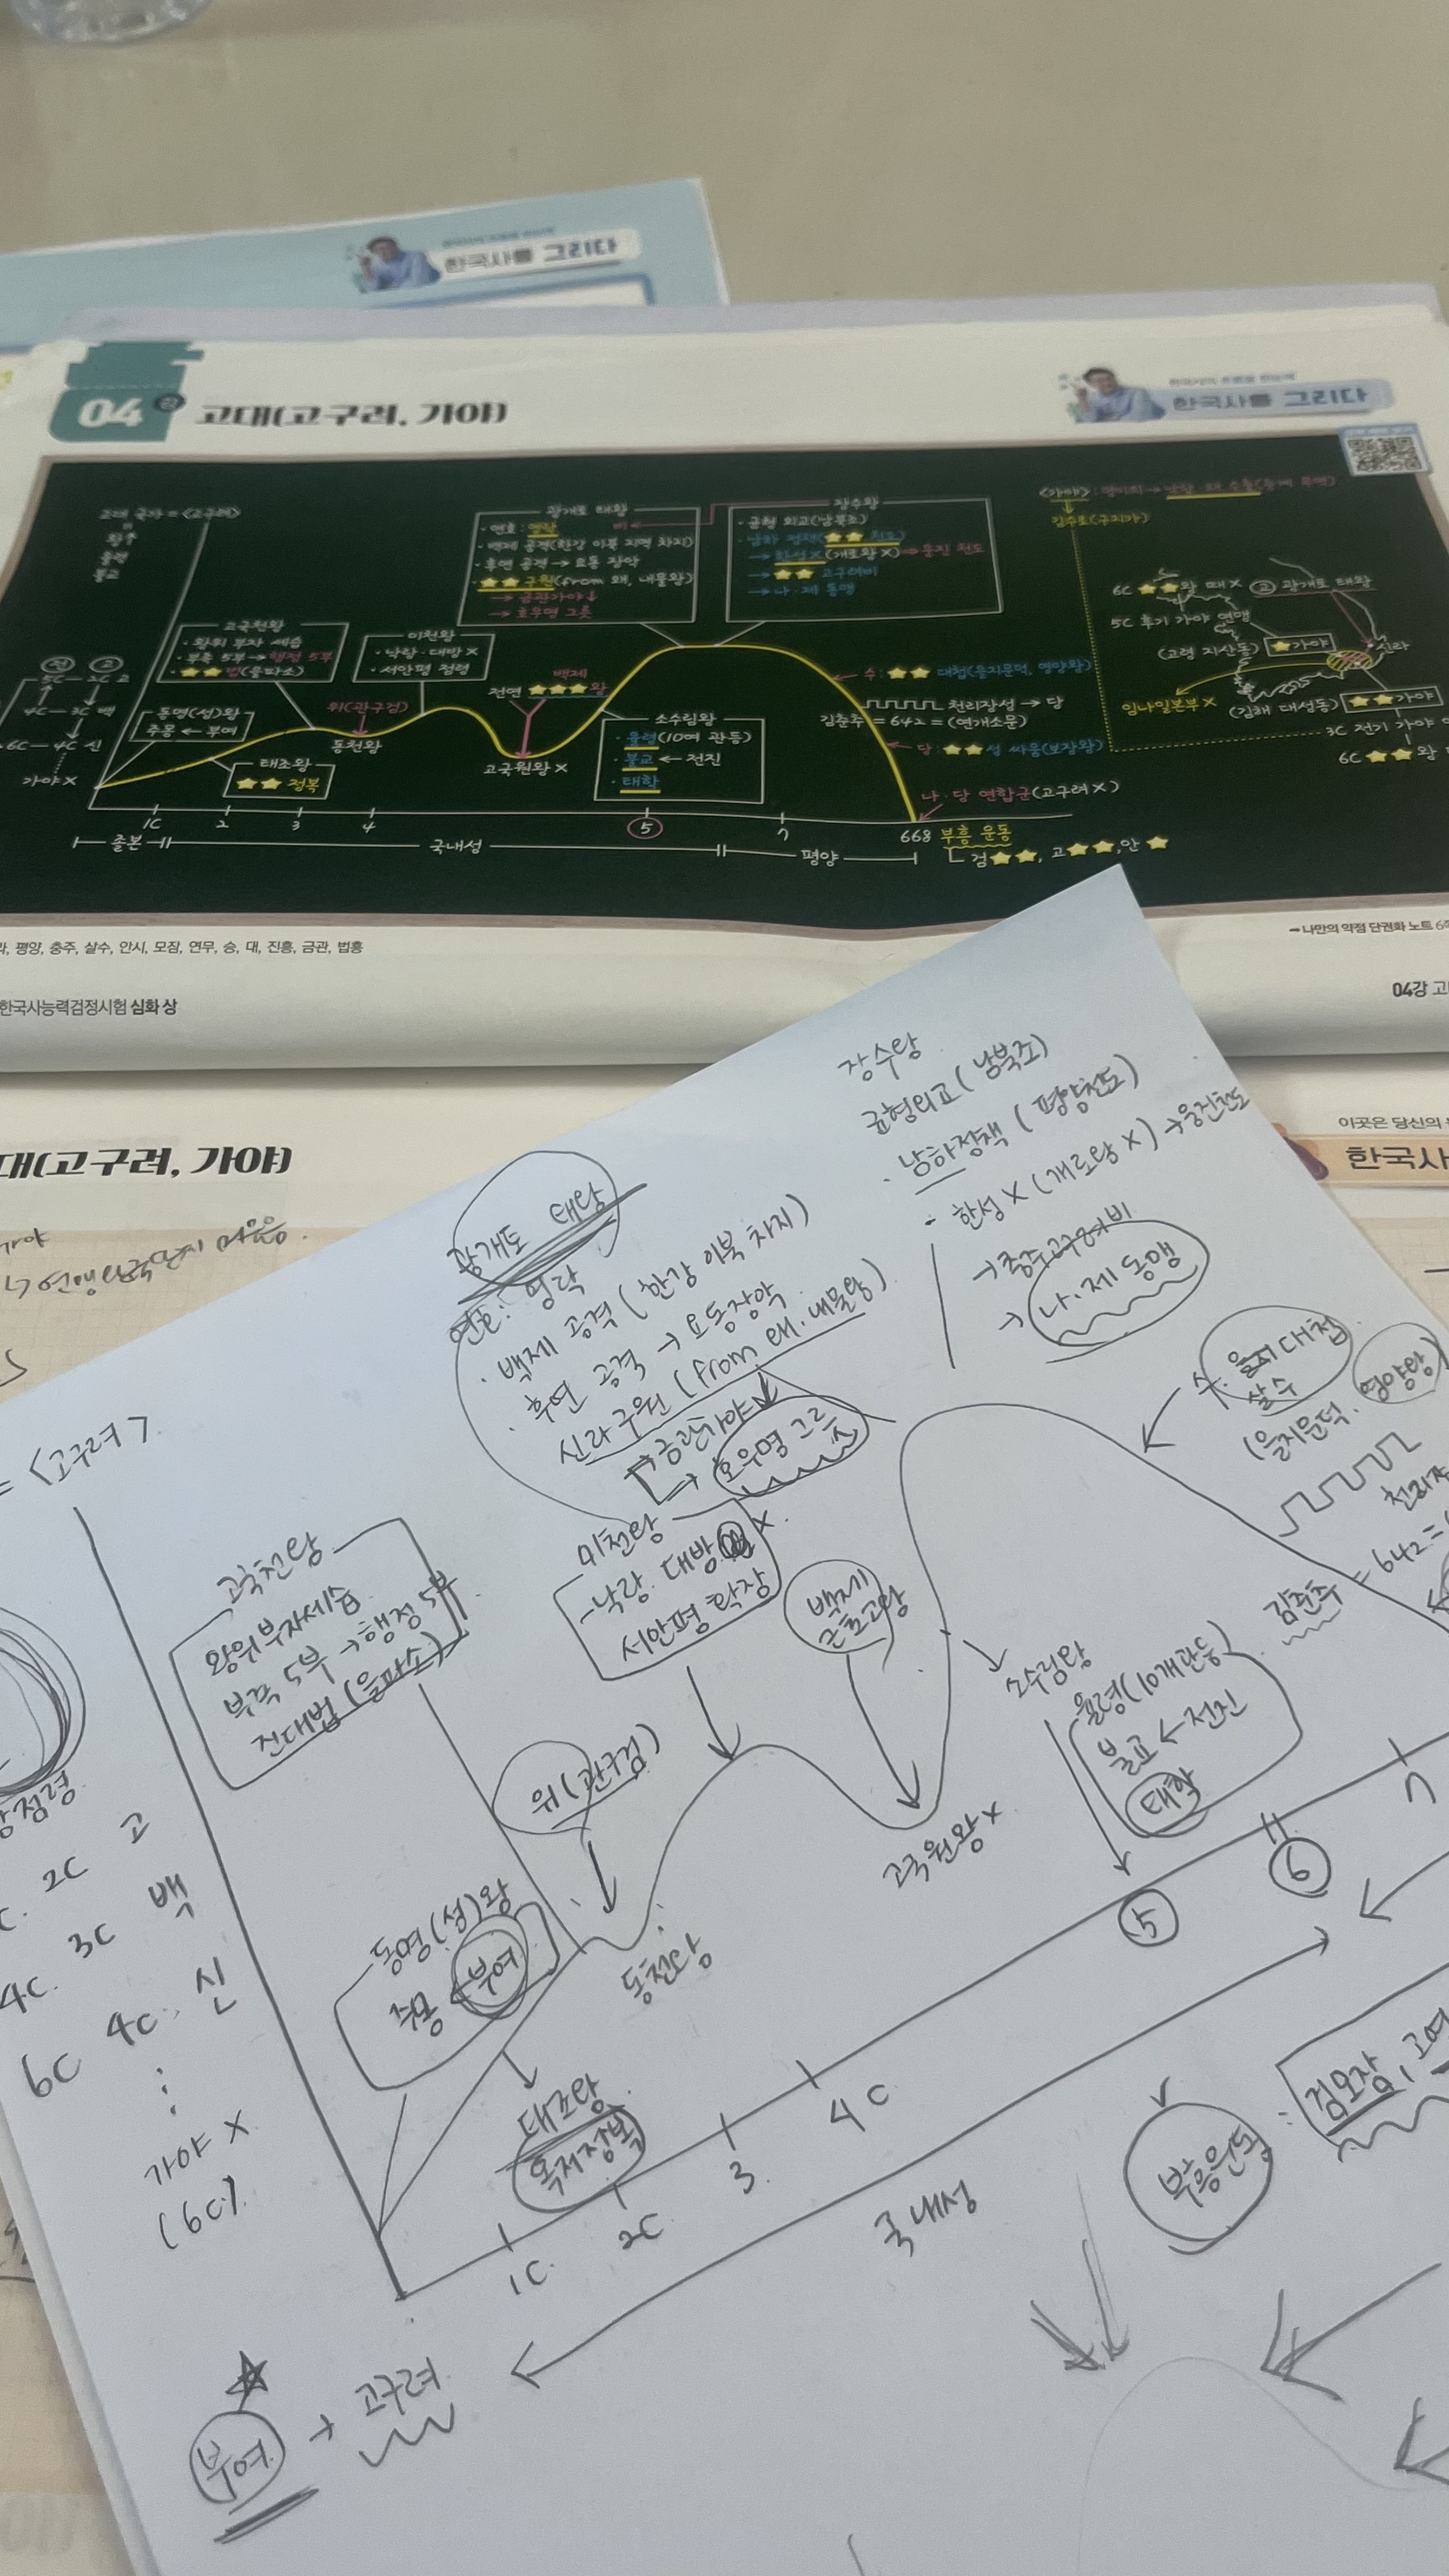 한국사를 그리다
04강 고대(고구려, 가야)
한국사를 그리다
고대 국가 = <고구려>
왕↑
율령
불교
5C — 2C 고
4C — 3C 백
6C — 4C 신
가야 X
고국천왕
· 왕위 부자 세습
· 부족 5부 → 행정 5부
· ★★법(을파소)
동명(성)왕
주몽 ← 부여
태조왕
★★ 정복
위(관구검)
동천왕
미천왕
· 낙랑·대방 X
· 서안평 점령
광개토 태왕
· 연호: 영락
비
· 백제 공격(한강 이북 지역 차지)
· 후연 공격 → 요동 장악
· ★★구원(from 왜, 내물왕)
→ 금관가야↓
→ 호우명 그릇
백제
전연 ★★★왕
고국원왕 X
장수왕
· 균형 외교(남북조)
· 남하 정책(★★ 천도)
→ 한성 X (개로왕 X) → 웅진 천도
→ ★★ 고구려비
→ 나·제 동맹
소수림왕
· 율령(10여 관등)
· 불교 ← 전진
· 태학
수: ★★ 대첩(을지문덕, 영양왕)
천리장성 → 당
김춘추 = 642 = (연개소문)
당: ★★성 싸움(보장왕)
나·당 연합군(고구려 X)
668 부흥 운동
검★★, 고★★, 안★
1C 2 3 4 5 7
졸본 국내성 평양
<가야>
김수로(구지가)
6C ★★왕 때 X 고 광개토 태왕
5C 후기 가야 연맹
(고령 지산동) ★가야
신라
임나일본부 X (김해 대성동) ★★가야
3C 전기 가야
6C ★★왕
평양, 충주, 살수, 안시, 모잠, 연무, 승, 대, 진흥, 금관, 법흥
나만의 약점 단권화 노트
한국사능력검정시험 심화 상
04강 고
대(고구려, 가야)
이곳은 당신의
한국사
가야
장수왕
균형외교(남북조)
· 남하정책 (평양천도)
· 한성 X (개로왕 X) → 웅진천도
→ 충주고구려비
→ 나·제 동맹
광개토 태왕
연호: 영락
· 백제 공격 (한강 이북 차지)
· 후연 공격 → 요동장악
신라구원 (from 왜, 내물왕)
→ 금관가야↓
→ 호우명 그릇
= <고구려>
고국천왕
왕위부자세습
부족 5부 → 행정 5부
진대법 (을파소)
미천왕
- 낙랑. 대방 X
서안평 확장
백제
근초고왕
수. 대첩
살수
(을지문덕. 영양왕)
김춘추 = 642 =
소수림왕
율령(10개관등)
불교 ← 전진
태학
위(관구검)
고국원왕 X
동명(성)왕
주몽 ← 부여
동천왕
태조왕
옥저정복
2C 고
4C. 3C 백
6C 4C. 신
가야 X
(6C).
1C. 2C 3. 4C 5 6 7
국내성
부흥운동 : 검모잠,
부여 → 고구려